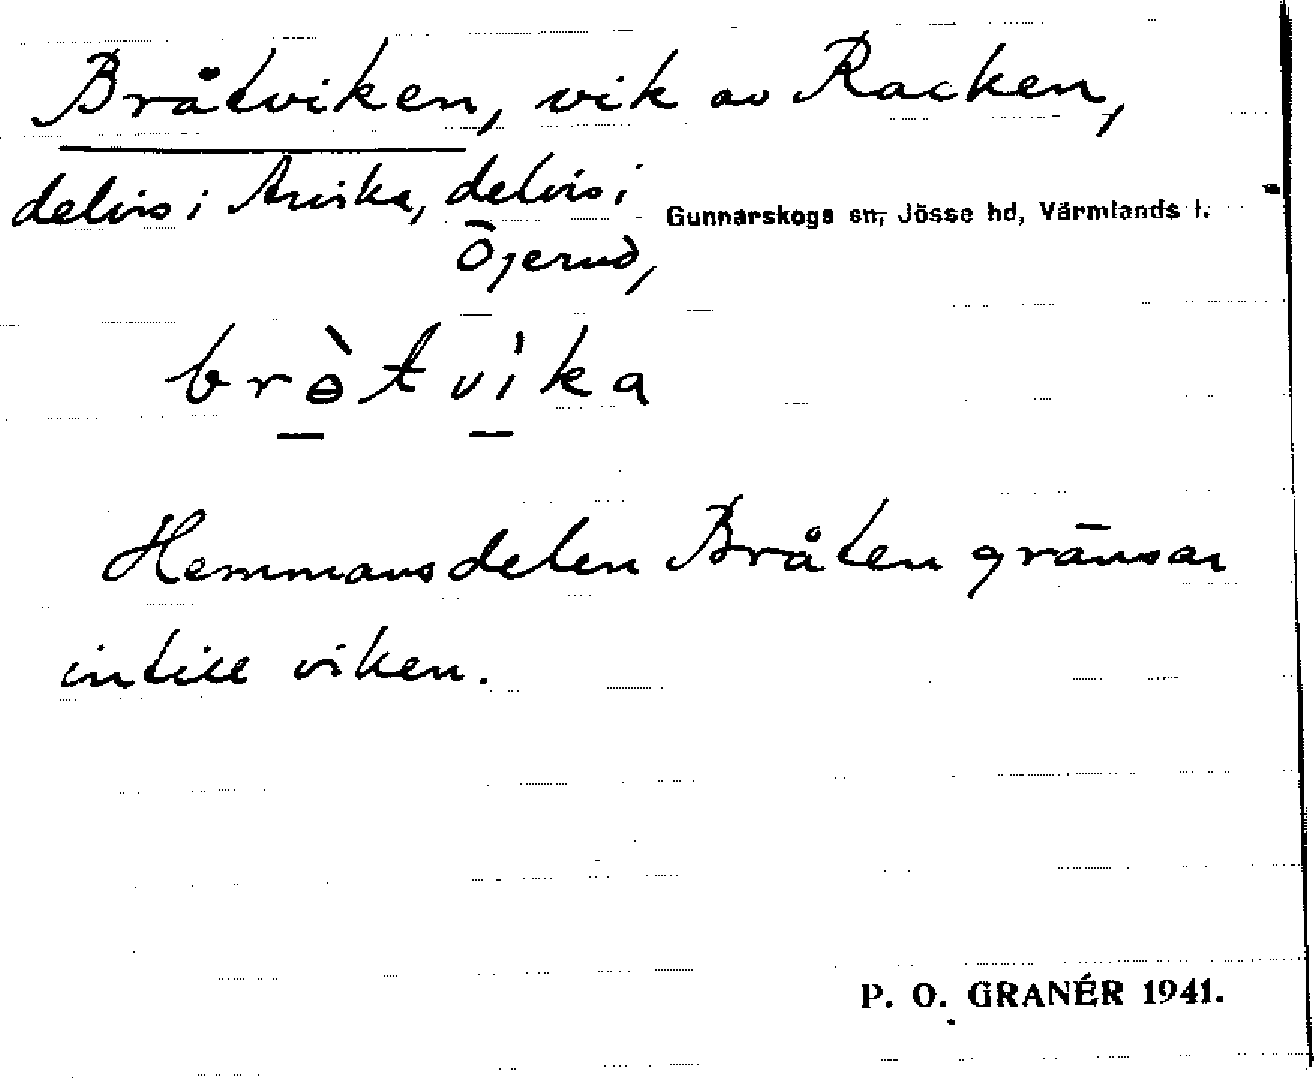 Bråtviken, vik av Racken,
delvis i Arvika, delvis i
Gunnarskogs sn, Jösse hd, Värmlands l.
Öjerud,
brɵ̀tvìka
Hemmansdelen Bråten gränsar
intill viken.
P. O. GRANÉR 1941.